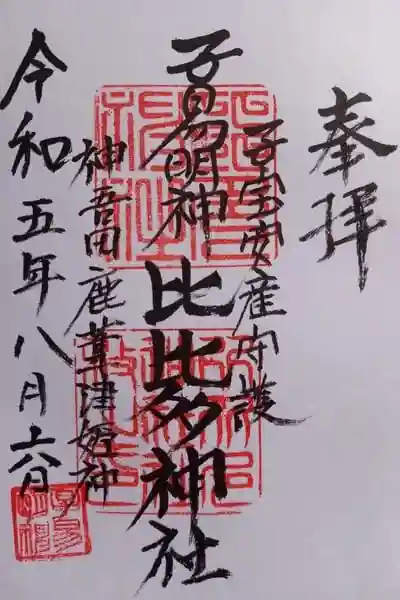 奉拝
子宝安産守護
子易明神 比比多神社
神吾田鹿葦津姫神
令和五年八月六日